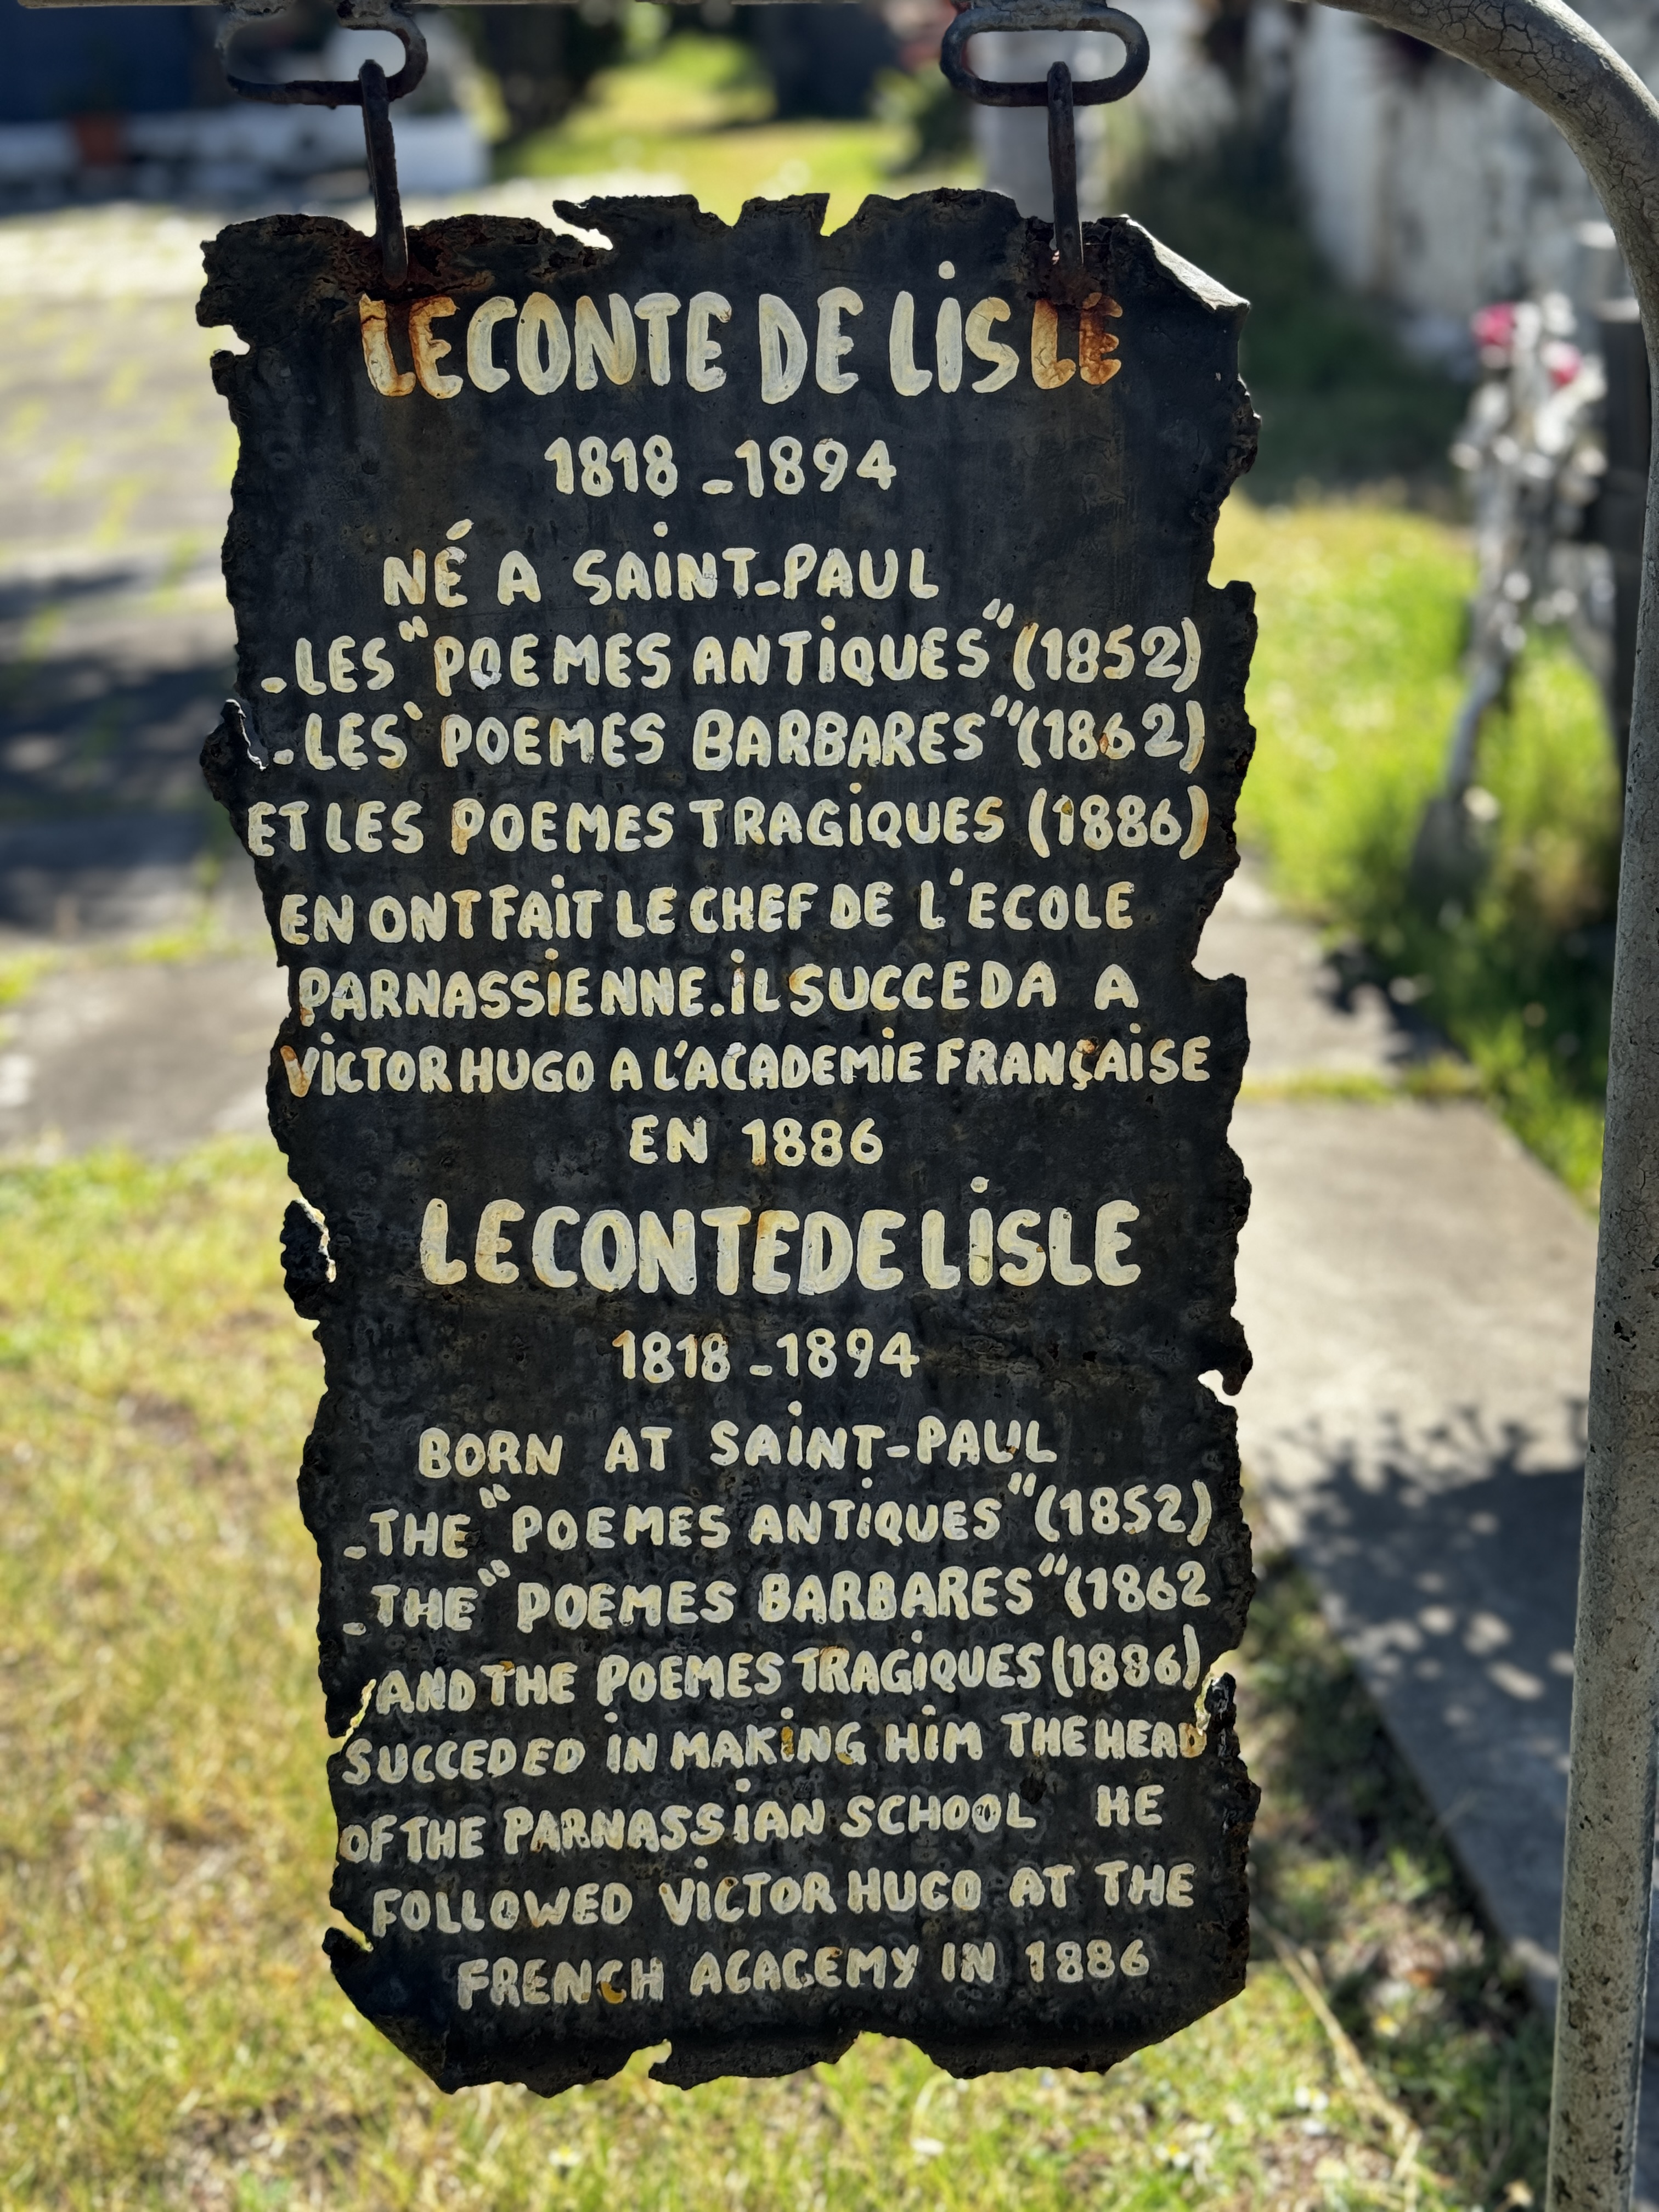 LECONTE DE LISLE
1818 - 1894
NÉ A SAINT-PAUL
-LES "POEMES ANTIQUES" (1852)
-LES' POEMES BARBARES" (1862)
ET LES POEMES TRAGIQUES (1886)
EN ONT FAIT LE CHEF DE L'ECOLE
PARNASSIENNE. IL SUCCEDA A
VICTOR HUGO A L'ACADEMIE FRANÇAISE
EN 1886
LECONTE DE LISLE
1818 - 1894
BORN AT SAINT-PAUL
-THE "POEMES ANTIQUES" (1852)
-THE "POEMES BARBARES" (1862
AND THE POEMES TRAGIQUES (1886)
SUCCEDED IN MAKING HIM THE HEAD
OF THE PARNASSIAN SCHOOL HE
FOLLOWED VICTOR HUCO AT THE
FRENCH ACACEMY IN 1886